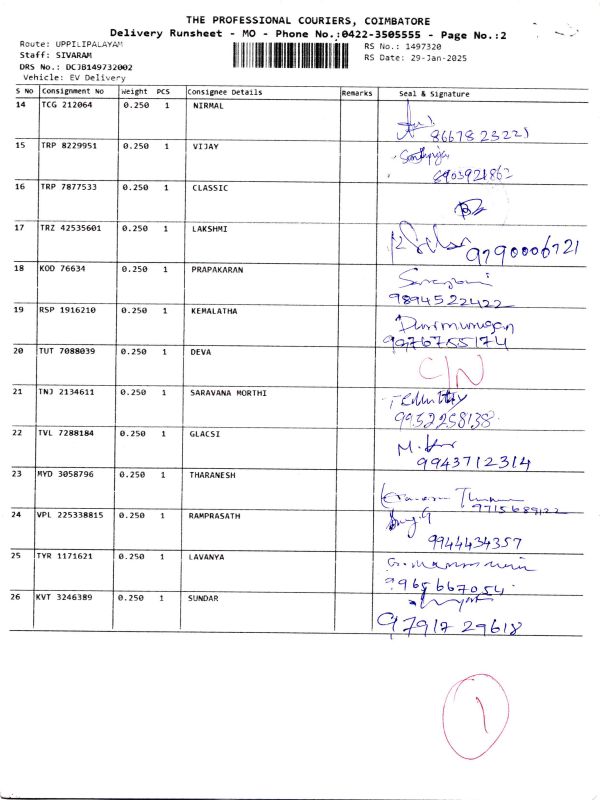 THE PROFESSIONAL COURIERS, COIMBATORE
Delivery Runsheet - MO - Phone No.:0422-3505555 - Page No.:2
Route: UPPILIPALAYAM
Staff: SIVARAM
DRS No.: DCJB149732002
Vehicle: EV Delivery
RS No.: 1497320
RS Date: 29-Jan-2025
S No Consignment No Weight PCS Consignee Details Remarks Seal & Signature
14 TCG 212064 0.250 1 NIRMAL
86678 23221
15 TRP 8229951 0.250 1 VIJAY
8903921862
16 TRP 7877533 0.250 1 CLASSIC
17 TRZ 42535601 0.250 1 LAKSHMI
9790006721
18 KOD 76634 0.250 1 PRAPAKARAN
9894522422
19 RSP 1916210 0.250 1 KEMALATHA
9976755174
20 TUT 7088039 0.250 1 DEVA
C/N
21 TNJ 2134611 0.250 1 SARAVANA MORTHI
9952258138
22 TVL 7288184 0.250 1 GLACSI
9943712314
23 MYD 3058796 0.250 1 THARANESH
9715689122
24 VPL 225338815 0.250 1 RAMPRASATH
9944434357
25 TYR 1171621 0.250 1 LAVANYA
9965667054
26 KVT 3246389 0.250 1 SUNDAR
97917 29618
1